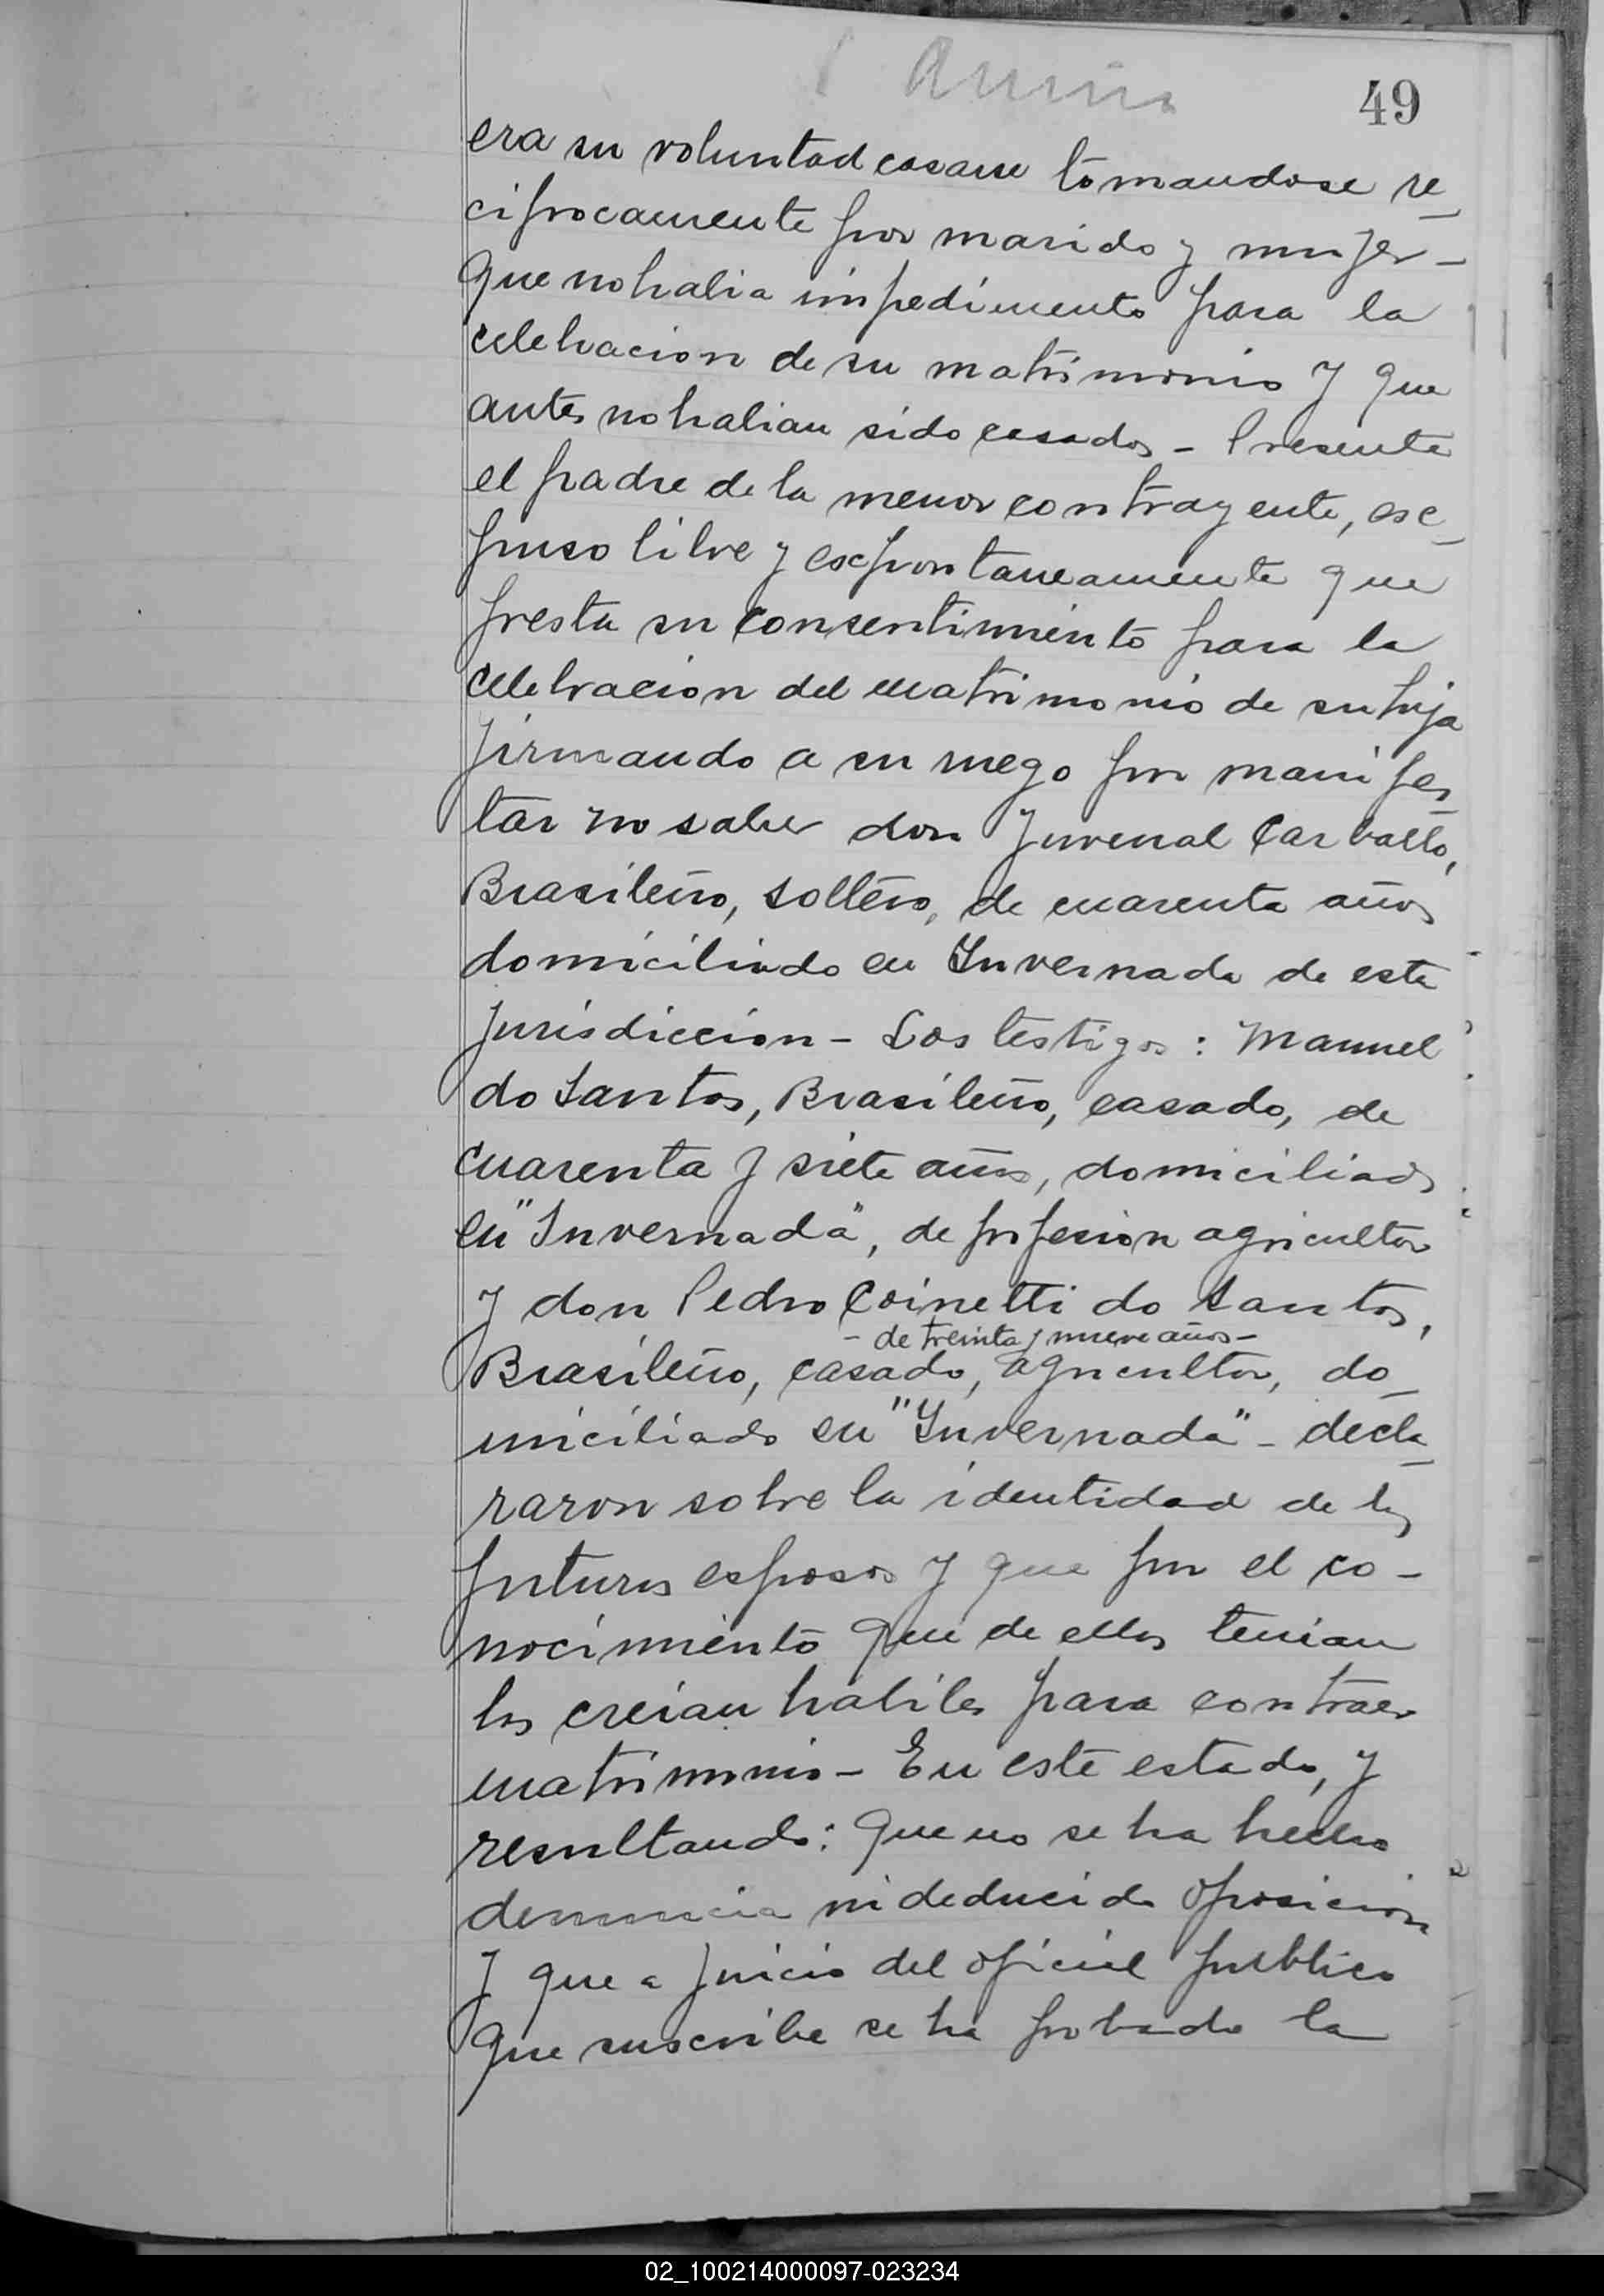 49
era su voluntad casarse tomandose re_
ciprocamente por marido y mujer_
que no habia impedimento para la
celebracion de su matrimonio y que
antes no habian sido casados - Presente
el padre de la menor contrayente, esc_
puso libre y escpontaneamente que
presta su consentimiento para la
celebracion del matrimonio de su hija
firmando a su ruego por manifes_
tar no saber don Juvenal Carvallo,
Brasileño, soltero, de cuarenta años
domiciliado en Invernada de esta
jurisdiccion - Los testigos: Manuel
do Santos, Brasileño, casado, de
cuarenta y siete años, domiciliado
en "Invernada", de profesion agricultor
y don Pedro Coinetti do Santos,
- de treinta y nueve años -
Brasileño, casado, agricultor, do_
miciliado en "Invernada" - decla_
raron sobre la identidad de los
futuros esposos y que por el co-
nocimiento que de ellos tenian
los creian habiles para contraer
matrimonio - En este estado, y
resultando: que no se ha hecho
denuncia ni deducido oposicion
y que a juicio del oficial publico
que suscribe se ha probado la
02_100214000097-023234